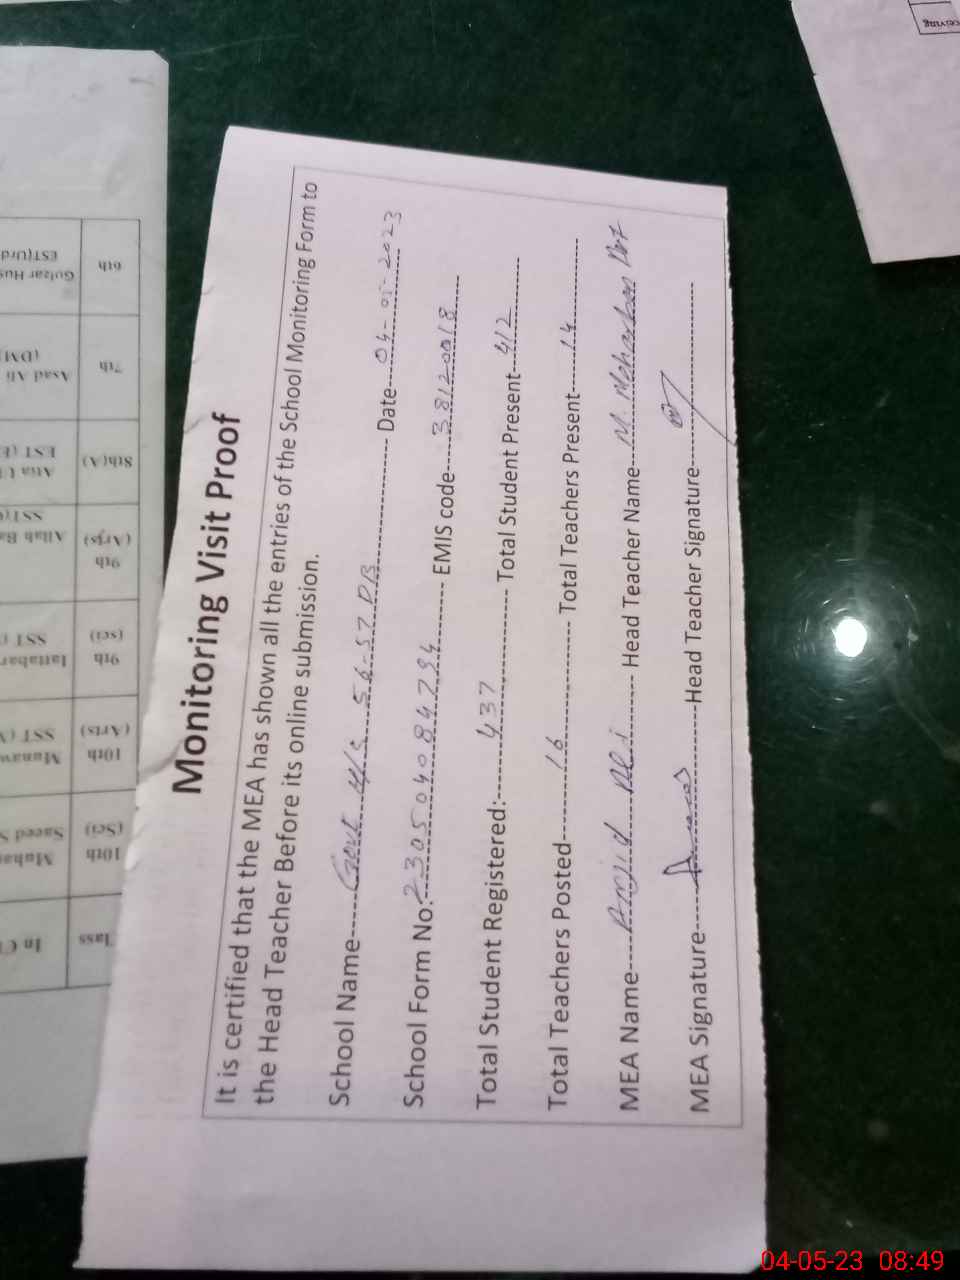 Monitoring Visit Proof
It is certified that the MEA has shown all the entries of the School Monitoring Form to
the Head Teacher Before its online submission.
School Name-----Govt H/S 56-57 DB---------------- Date---04-05-2023
School Form No:-2305040847294--------- EMIS code----38120018
Total Student Registered:-----437-------------- Total Student Present---412
Total Teachers Posted--------16-------------------- Total Teachers Present----14
MEA Name----Amjid Ali--------- Head Teacher Name---M.
MEA Signature----- --------Head Teacher Signature----
6th
7th
8th(A)
9th
(Args)
9th
(sci)
10th
(Arts)
10th
(Sci)
Gulzar
EST(Urd
Asad Ali
(DM)
SST
SST
Saeed
In
04-05-23 08:49